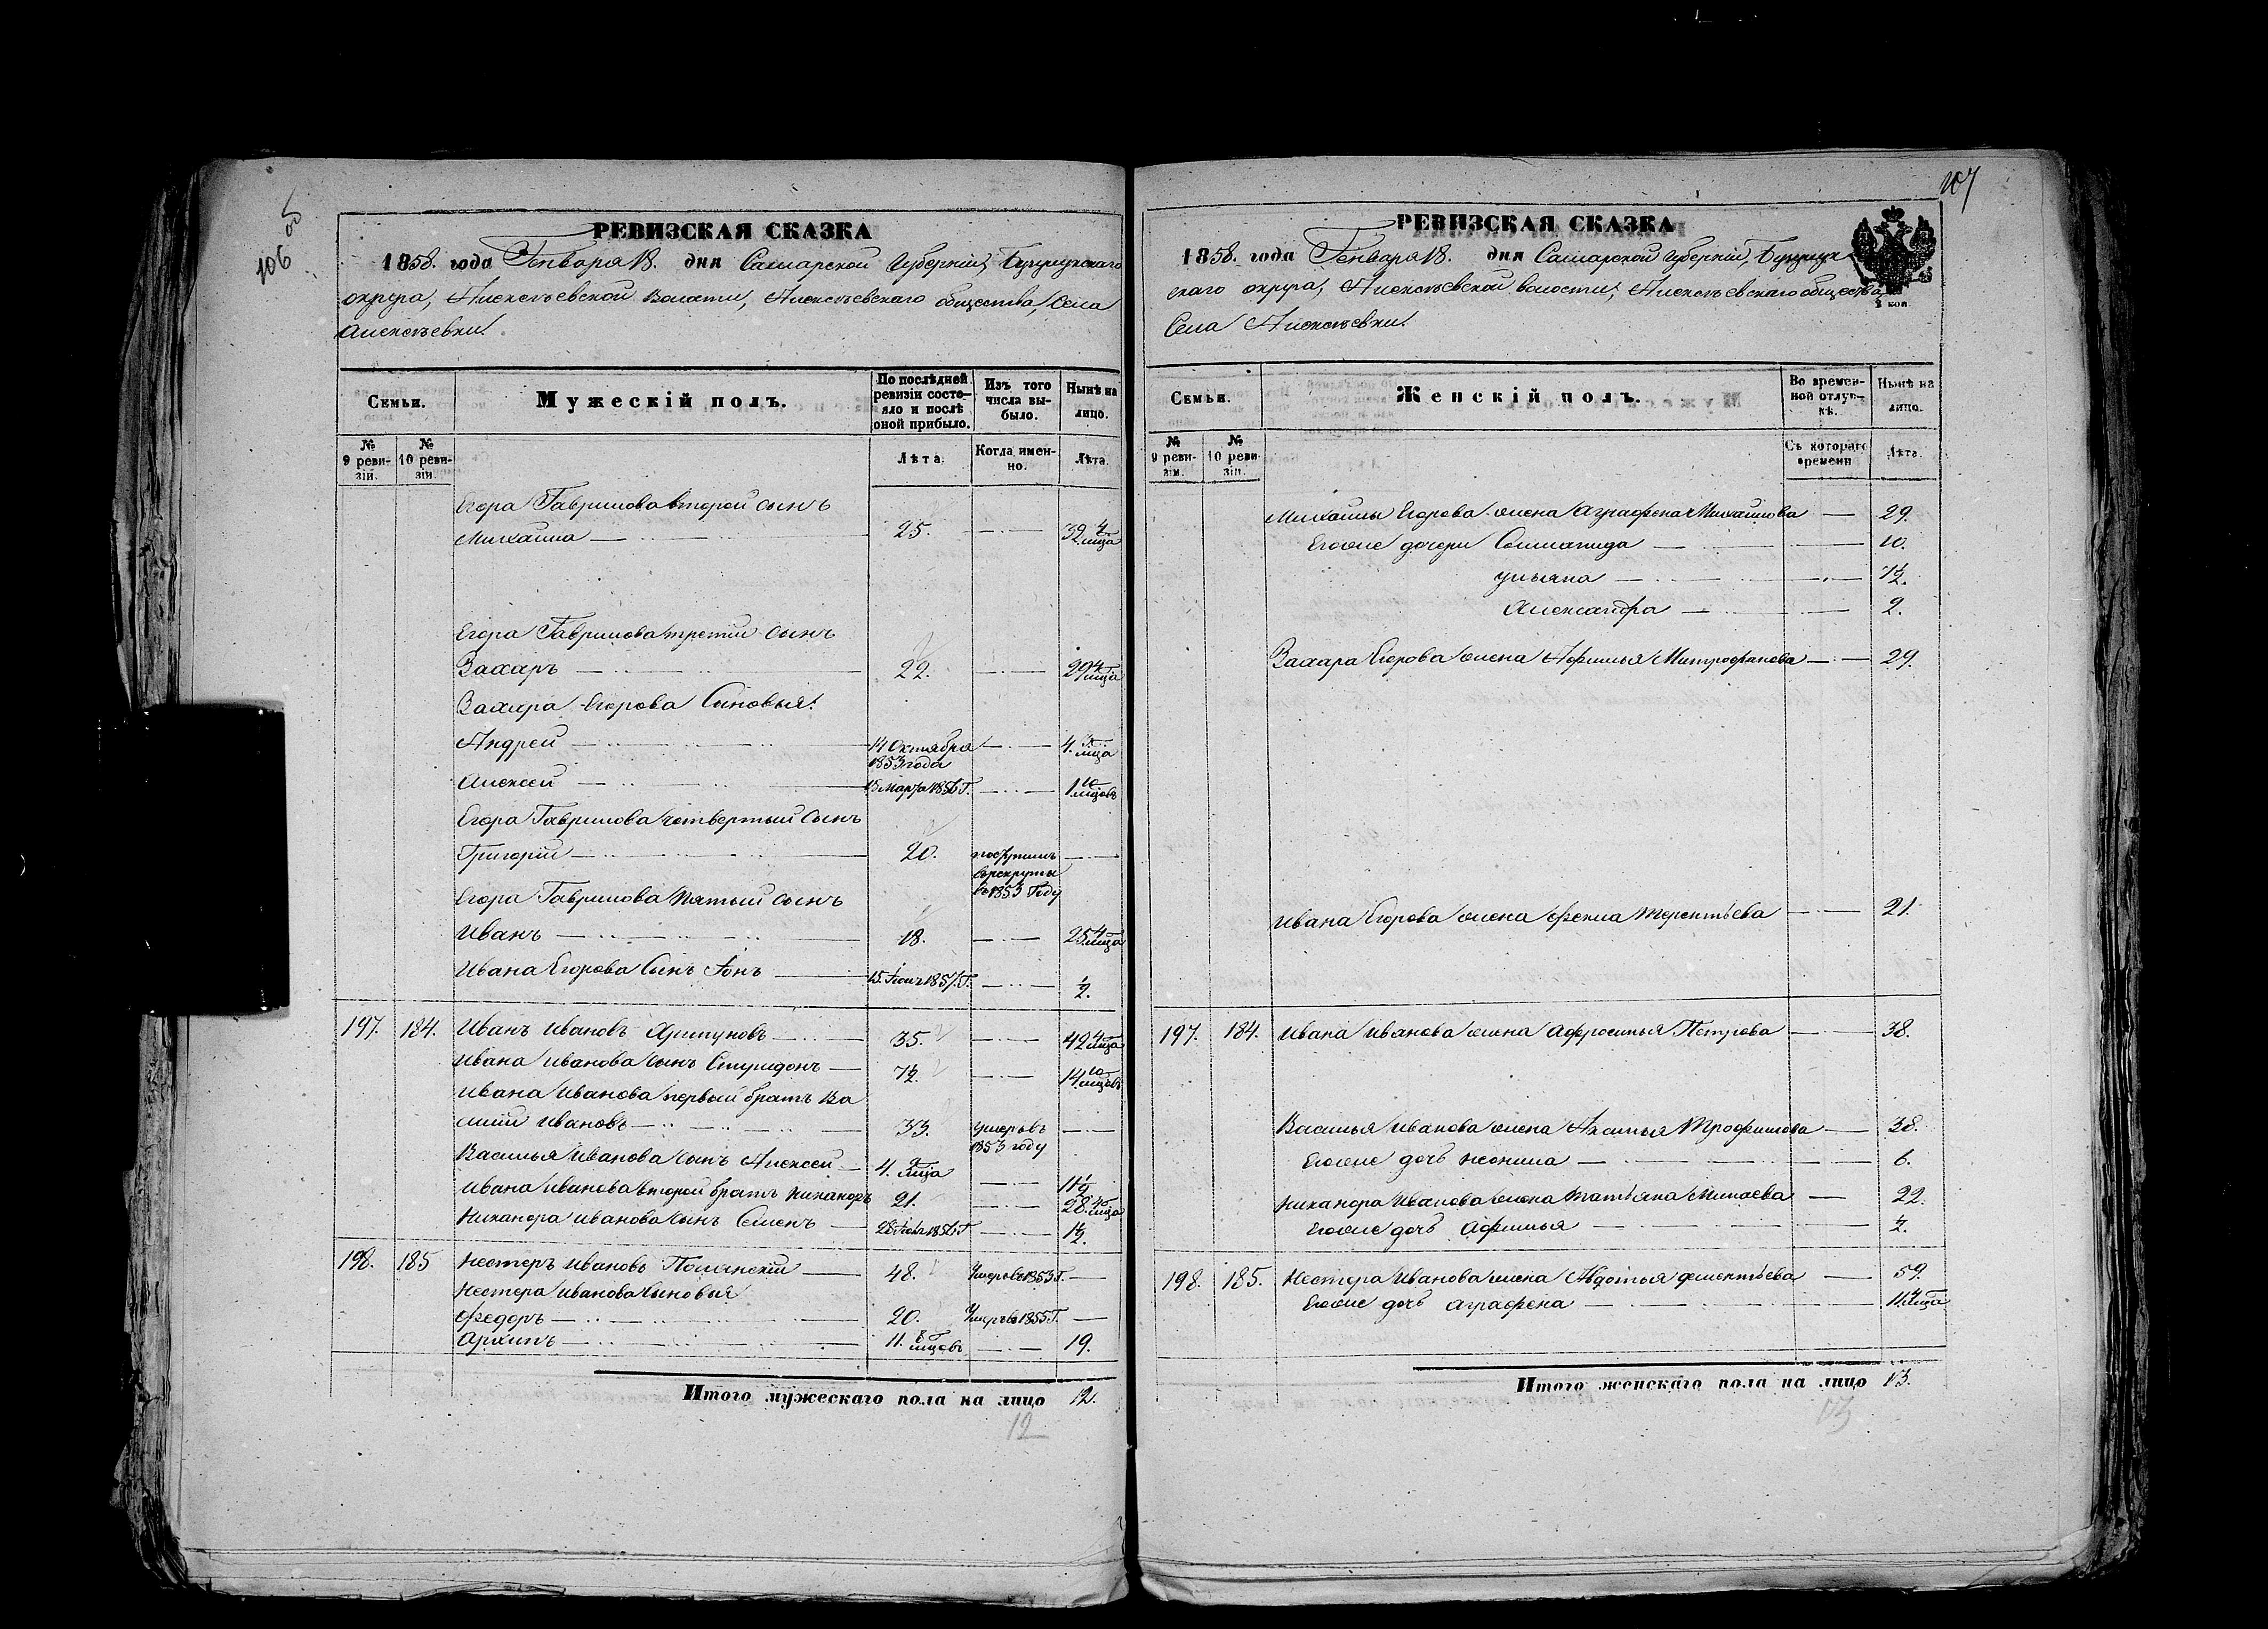 106
РЕВИЗСКАЯ СКАЗКА
1858. года Генваря 18. дня Самарской Губерніи, Бузулукскаго
округа, Алексѣевской Волости, Алексѣевскаго общества, Села
Алексѣевки.
Семьи.
Мужескій полъ.
По послѣдней ревизіи состояло и послѣ оной прибыло.
Изъ того числа выбыло.
Нынѣ на лицо.
№ 9 ревизіи.
№ 10 ревизіи.
Лѣта.
Когда именно.
Лѣта.
Егора Гаврилова второй сынъ
Михайла 25. 32 4/мѣца
Егора Гаврилова третій сынъ
Захаръ 22. 29 4/мѣца
Захара Егорова Сыновья:
Андрей 14 Октября 1853 года 4. 3/мѣца
Алексей 15 Марта 1856 Г. 1. 10/мѣцовъ
Егора Гаврилова четвертый сынъ
Григорій 20. поступилъ в рекруты въ 1853 Году
Егора Гаврилова пятый сынъ
Иванъ 18. 25 4/мѣца
Ивана Егорова Сынъ Іонъ 15. 1857. Г. ½.
197. 184. Иванъ Ивановъ 35. 42 4/мѣца
Ивана Иванова сынъ Спиридонъ 7½. 14 10/мѣцовъ
Ивана Иванова первый братъ Ва
силій Ивановъ 33. умеръ въ 1853 году
Василья Иванова сынъ Алексей 4. мѣца 11½
Ивана Иванова второй братъ Никаноръ 21. 28. 4/мѣца
Никанора Иванова сынъ Семенъ 28 1856 Г. 1½.
198. 185 Нестеръ Ивановъ 48. Умеръ въ 1853 Г.
Нестера Иванова сыновья
Федоръ 20. Умеръ въ 1855. Г.
Архипъ 11. 8/мѣцовъ 19.
Итого мужескаго пола на лицо 12.
12
107
РЕВИЗСКАЯ СКАЗКА
1858. года Генваря 18. дня Самарской Губерніи, Бузулук
скаго округа, Алексѣевской волости, Алексѣевскаго общества
коп.
Села Алексѣевки.
Семьи.
Женскій полъ.
Во временной отлучкѣ.
Нынѣ на лицо.
№ 9 ревизіи.
№ 10 ревизіи.
Съ котораго времени
Лѣта.
Михайлы Егорова жена Аграфена Михайлова 29.
Егоже дочери Соломанида 10.
Ульяна 7½.
Александра 2.
Захара Егорова жена Афимья Митрофанова 29.
Ивана Егорова жена Фекла Терентьева 21.
197. 184. Ивана Иванова жена Афросинья Петрова 38.
Василья Иванова жена Аксинья Трофимова 38.
Егоже дочь Неонила 6.
Никанора Иванова жена Татьяна Минаева 22.
Егоже дочь Афимья ½.
198. 185. Нестера Иванова жена Авдотья Дементьева 59.
Егоже дочь Аграфена 11. 4/мѣца
Итого женскаго пола на лицо 13.
13